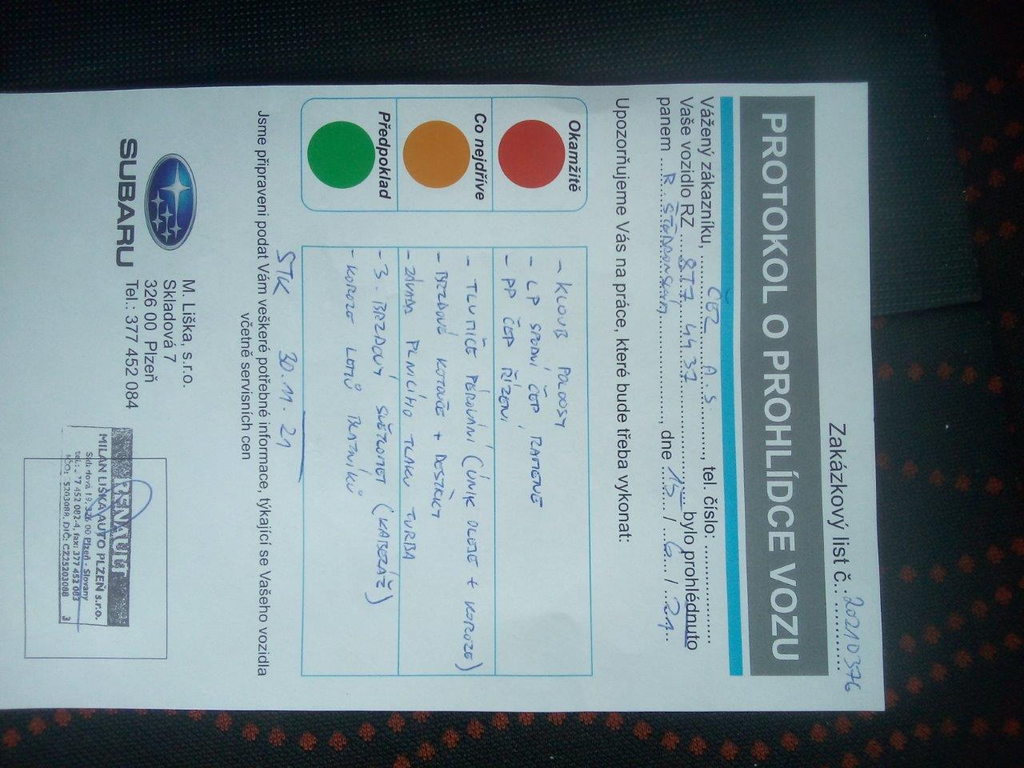 Zakázkový list č. 20210376
PROTOKOL O PROHLÍDCE VOZU
Vážený zákazníku, ČEZ A.S, tel. číslo:
Vaše vozidlo RZ 8T7 4437 bylo prohlédnuto
panem R, dne 15 / 6 / 21
Upozorňujeme Vás na práce, které bude třeba vykonat:
Okamžitě
- KLOUB POLOOSY
- LP SPODNÍ ČEP RAMENE
- PP ČEP ŘÍZENÍ
Co nejdříve
- TLUMIČE PÉROVÁNÍ (ÚNIK OLEJE + KOROZE)
- BRZDOVÉ KOTOUČE + DESTIČKY
- ZÁVADA PLNICÍHO TLAKU TURBA
Předpoklad
- 3. BRZDOVÝ SVĚTLOMET (KAROSÁŽ)
- KOROZE LEMŮ BLATNÍKŮ
STK 30.11.21
Jsme připraveni podat Vám veškeré potřebné informace, týkající se Vašeho vozidla
včetně servisních cen
SUBARU
M. Liška, s.r.o.
Skladová 7
326 00 Plzeň
Tel.: 377 452 084
RENAULT
MILAN LIŠKA AUTO PLZEŇ s.r.o.
Skladová 19, 326 00 Plzeň - Slovany
tel.: 377 452 082-4, fax: 377 452 083
IČO: 25203088, DIČ: CZ25203088
3